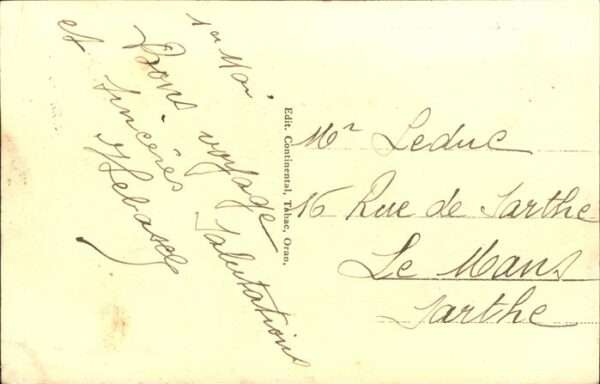 1er Mai
Bons voyage
et sincères Salutations
Edit. Continental, Tabac, Oran.
Mr Leduc
16 Rue de Sarthe
Le Mans
Sarthe